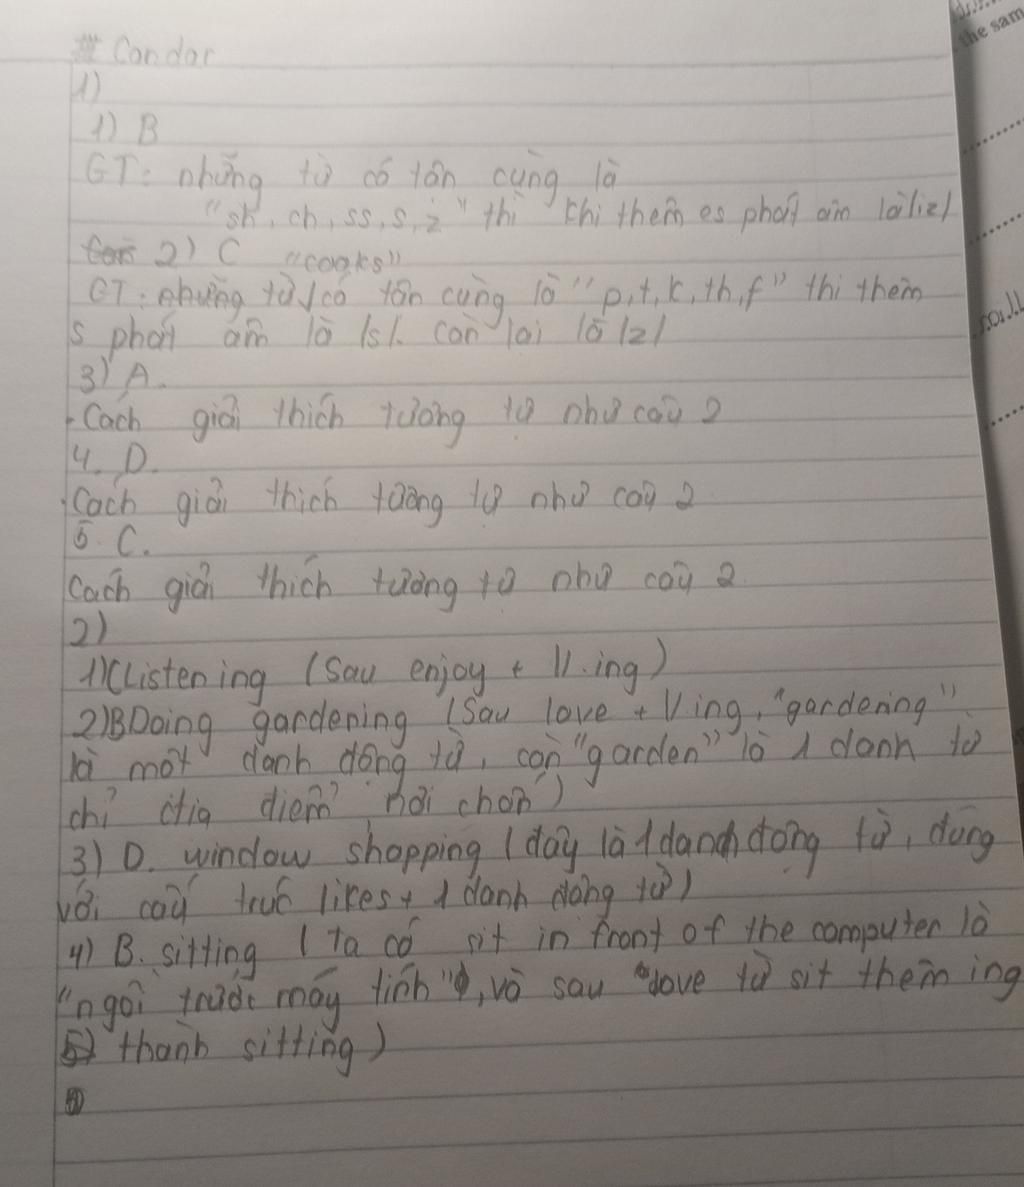 # Condor
1)
1) B
GT: những từ có tận cùng là
"sh, ch, ss, s, z" thì khi thêm es phát âm là /iz/
2) C "cooks"
GT: những từ có tận cùng là "p, t, k, th, f" thì thêm
s phát âm là /s/. còn lại là /z/
3) A.
- Cách giải thích tương tự như câu 2
4. D.
. Cách giải thích tương tự như câu 2
5. C.
Cách giải thích tương tự như câu 2.
2)
1) C Listening (Sau enjoy + V.ing)
2) B Doing gardening (Sau love + Ving, "gardening"
là một danh động từ, còn "garden" là 1 danh từ
chỉ địa điểm nơi chốn)
3) D. window shopping (đây là 1 danh động từ, dùng
với cấu trúc likes + 1 danh động từ)
4) B. sitting (Ta có sit in front of the computer là
"ngồi trước máy tính", và sau love từ sit thêm ing
thành sitting)
the sam